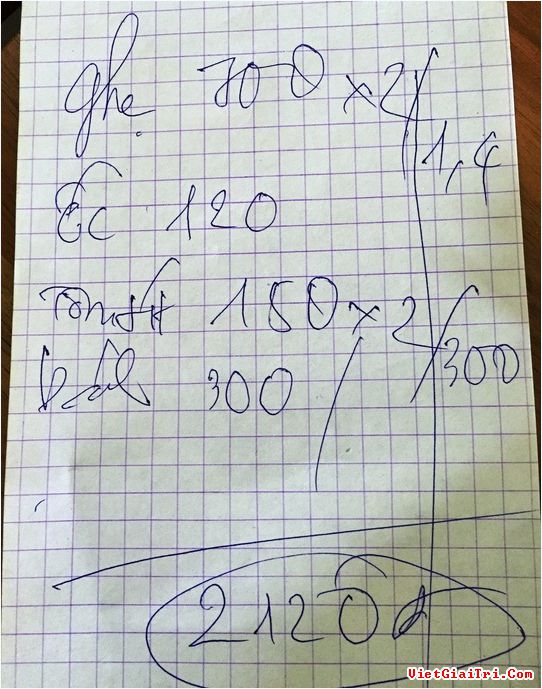 ghẹ 700 x 2/
1,4
Ốc 120
150 x 2/
300
300
2120đ
VietGiaiTri.Com